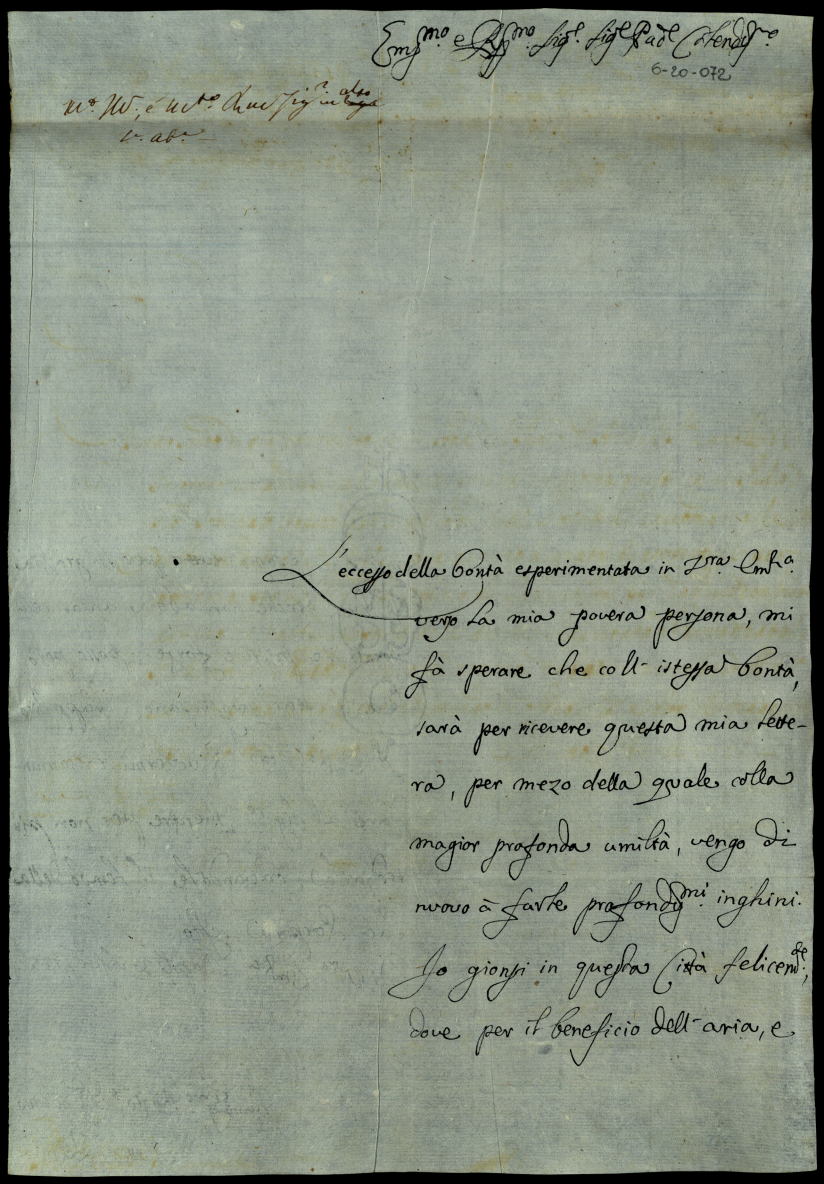 Em͞mo e R͞mo Sig.e Sig.e Pad.e Col͞end͞mo
6-20-072
L'eccesso della bontà esperimentata in V͞ra Em͞za
verso la mia povera persona, mi
fà sperare che coll' istessa bontà,
sarà per ricevere questa mia lette-
ra, per mezo della quale colla
magior profonda umiltà, vengo di
nuovo à farle profond͞mi inghini.
Io gionsi in questa Città felicem͞te,
dove per il beneficio dell' aria, e